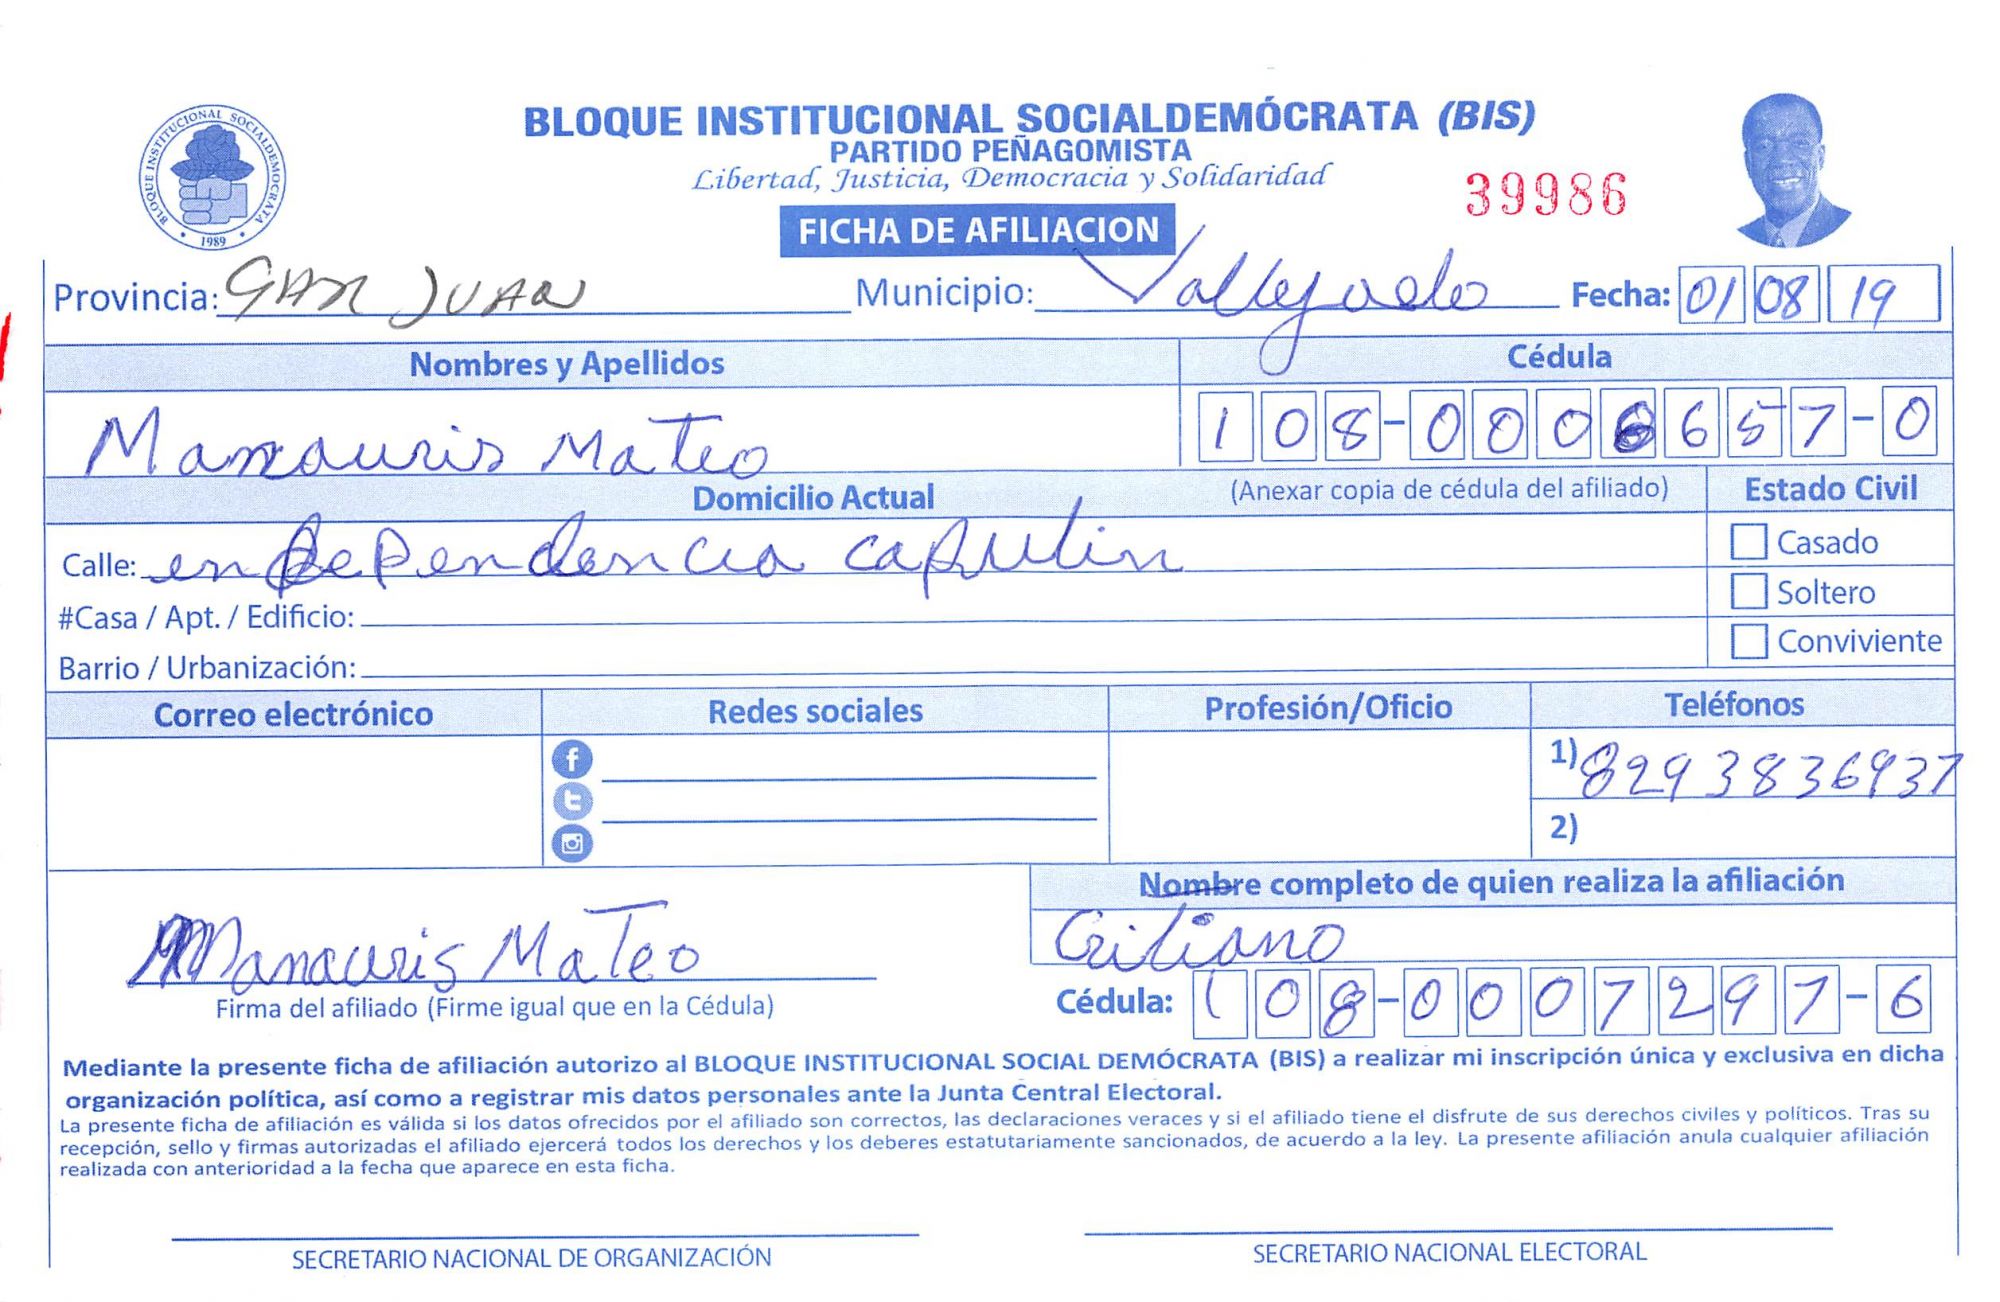 BLOQUE INSTITUCIONAL SOCIALDEMÓCRATA (BIS)
PARTIDO PEÑAGOMISTA
Libertad, Justicia, Democracia y Solidaridad
39986
BLOQUE INSTITUCIONAL SOCIALDEMOCRATA
1989
FICHA DE AFILIACION
Provincia: San Juan Municipio: Vallejuelo Fecha: 01 08 19
Nombres y Apellidos Cédula
Manauris Mateo 108-0006657-0
Domicilio Actual (Anexar copia de cédula del afiliado) Estado Civil
Calle: endependencia capulin Casado
#Casa / Apt. / Edificio: Soltero
Barrio / Urbanización: Conviviente
Correo electrónico Redes sociales Profesión/Oficio Teléfonos
1) 8293836937
2)
Nombre completo de quien realiza la afiliación
Manauris Mateo
Firma del afiliado (Firme igual que en la Cédula) Cédula: 108-0007297-6
Mediante la presente ficha de afiliación autorizo al BLOQUE INSTITUCIONAL SOCIAL DEMÓCRATA (BIS) a realizar mi inscripción única y exclusiva en dicha
organización política, así como a registrar mis datos personales ante la Junta Central Electoral.
La presente ficha de afiliación es válida si los datos ofrecidos por el afiliado son correctos, las declaraciones veraces y si el afiliado tiene el disfrute de sus derechos civiles y políticos. Tras su
recepción, sello y firmas autorizadas el afiliado ejercerá todos los derechos y los deberes estatutariamente sancionados, de acuerdo a la ley. La presente afiliación anula cualquier afiliación
realizada con anterioridad a la fecha que aparece en esta ficha.
SECRETARIO NACIONAL DE ORGANIZACIÓN SECRETARIO NACIONAL ELECTORAL